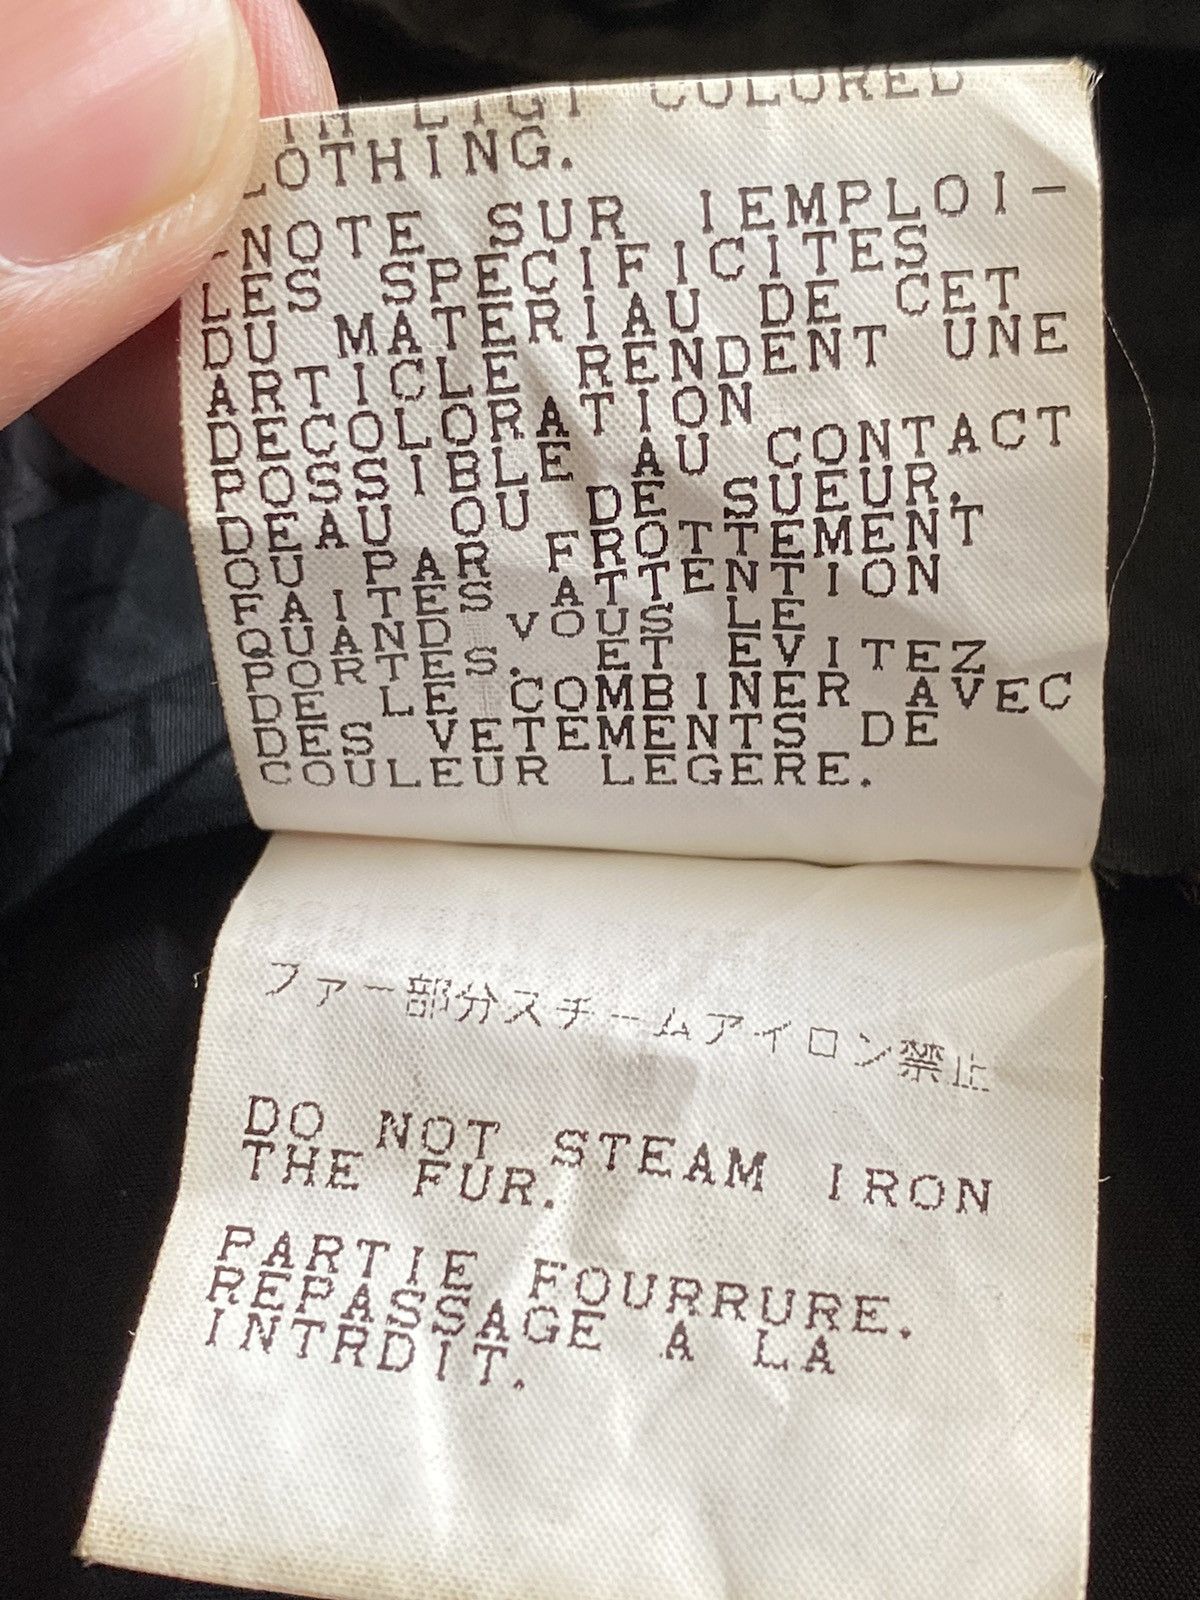 TH LIGT COLORED
LOTHING.
-NOTE SUR IEMPLOI-
LES SPECIFICITES
DU MATERIAU DE CET
ARTICLE RENDENT UNE
DECOLORATION
POSSIBLE AU CONTACT
DEAU OU DE SUEUR,
OU PAR FROTTEMENT
FAITES ATTENTION
QUAND VOUS LE
PORTES. ET EVITEZ
DE LE COMBINER AVEC
DES VETEMENTS DE
COULEUR LEGERE.
ファー部分スチームアイロン禁止
DO NOT STEAM IRON
THE FUR.
PARTIE FOURRURE.
REPASSAGE A LA
INTRDIT.